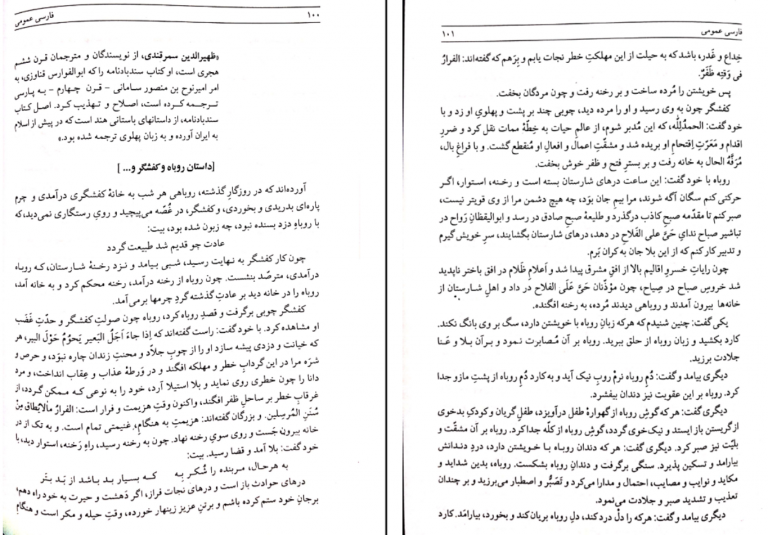 ۱۰۰ فارسی عمومی
«ظهیرالدین سمرقندی، از نویسندگان و مترجمان قرن ششم
هجری است، او کتاب سندبادنامه را که ابوالفوارس قناوزی، به
امر امیرنوح بن منصور سامانی - قرن چهارم - به پارسی
ترجمه کرده است، اصلاح و تهذیب کرد. اصل کتاب
سندبادنامه، از داستانهای باستانی هند است که در پیش از اسلام
به ایران آورده و به زبان پهلوی ترجمه شده بود.»
[داستان روباه و کفشگر و... ]
آورده‌اند که در روزگار گذشته، روباهی هر شب به خانهٔ کفشگری درآمدی و چرم
پاره‌ای بدریدی و بخوردی، و کفشگر، در غُصّه می‌پیچید و رویِ رستگاری نمی‌دید، که
با روباهِ دزد بسنده نبود، چه زبون شده بود، بیت:
عادت چو قدیم شد طبیعت گردد
چون کار کفشگر به نهایت رسید، شبی بیامد و نزد رخنهٔ شارستان، که روباه
درآمدی، مترصّد بنشست. چون روباه از رخنه درآمد، رخنه محکم کرد و به خانه آمد،
روباه را در خانه دید بر عادتِ گذشته گردِ چرمها برمی‌آمد.
کفشگر چوبی برگرفت و قصدِ روباه کرد، روباه چون صولتِ کفشگر و حدّتِ غَضَب
او مشاهده کرد. با خود گفت: راست گفته‌اند که اِذا جاءَ اَجَلُ البَعیر یَحومُ حَولَ البیر، هر
که خیانت و دزدی پیشه سازد او را از چوبِ جلاّد و محنتِ زندان چاره نبوَد، و حرص و
شَرَه مرا در این گرداب خطر و مهلکه افگند و در وَرطهٔ عذاب و عِقاب انداخت، و مرد
دانا را چون خطری روی نماید و بلا استیلا آرد، خود را به نوعی که ممکن گردد، از
غرقابِ خطر بر ساحلِ ظفر افگند، و اکنون وقتِ هزیمت و فرار است: الفرارُ مالایُطاق مِنْ
سُنَنِ المُرسِلین. و بزرگان گفته‌اند: هزیمتِ به هنگام، غنیمتی تمام است. و به تک از در
خانه بیرون جَست و روی سویِ رخنه نهاد. چون به رخنه رسید، راهِ رَخنه، استوار دید، با
خود گفت: بلا آمد و قضا رسید. بیت:
به هرحال، مربنده را شُکر به که بسیار بد باشد از بَد بَتَر
درهای حوادث باز است و درهای نجات فراز، اگر دَهشت و حیرت به خود راه دهم،
برجانِ خود ستم کرده باشم و برتنِ عزیز زینهار خورده، وقتِ حیله و مکر است و هنگامِ
فارسی عمومی ۱۰۱
خِداع و غَدر، باشد که به حیلت از این مهلکتِ خطر نجات یابم و بِرَهم که گفته‌اند: الفرارُ
فی وَقتِه ظَفَرٌ.
پس خویشتن را مُرده ساخت و بر رخنه رفت و چون مردگان بخفت.
کفشگر چون به وی رسید و او را مرده دید، چوبی چند بر پشت و پهلویِ او زد و با
خود گفت: الحمدُلِلّه، که این مُدبر شوم، از عالمِ حیات به خِطّهٔ ممات نقل کرد و ضررِ
اقدام و مَعَرّتِ اِقتحامِ او بریده شد و مشقّتِ اعمال و افعالِ او مُنقَطع گشت. و با فراغِ بال،
مُرَفّهُ الحال به خانه رفت و بر بسترِ فتح و ظفر خوش بخفت.
روباه با خود گفت: این ساعت درهای شارستان بسته است و رخنه، استوار، اگر
حرکتی کنم سگان آگه شوند، مرا بیمِ جان بوَد، چه هیچ دشمن مرا از وی قویتر نیست،
صبر کنم تا مقدّمه صبحِ کاذب درگذرد و طلیعهٔ صبحِ صادق در رسد و ابوالیقظانِ رَواح در
تباشیرِ صباح ندایِ حَیَّ علی الفَلاح در دهد، درهای شارستان بگشایند، سرِ خویش گیرم
و تدبیر کار کنم که از این بلا جان به کران بَرم.
چون رایاتِ خسروِ اقالیم بالا از افق مشرق پیدا شد و اَعلامِ ظَلام در افق باختر ناپدید
شد خروسِ صباح در صِیاح، چون مؤذّنان حَیَّ عَلَی الفلاح در داد و اهلِ شارستان از
خانه‌ها بیرون آمدند و روباهی دیدند مُرده، به رخنه افگنده.
یکی گفت: چنین شنیدم که هرکه زبانِ روباه با خویشتن دارد، سگ بر وی بانگ نکند.
کارد بکشید و زبان روباه از حلق ببرید. روباه بر آن مصابرت نمود و برآن بلا و عَنا
جلادت برزید.
دیگری بیامد و گفت: دُمِ روباه نرمْ روبِ نیک آید و به کارد دُمِ روباه از پشتِ مازو جدا
کرد. روباه بر این عقوبت نیز دندان بیفشرد.
دیگری گفت: هرکه گوشِ روباه از گهوارهٔ طفل درآویزد، طفلِ گریان و کودکِ بدخوی
ازگریستن باز ایستد و نیک‌خوی گردد، گوشِ روباه از کلّه جداکرد. روباه بر آن مشقّت و
بلیّت نیز صبر کرد. دیگری گفت: هرکه دندان روباه با خویشتن دارد، دردِ دندانش
بیارامد و تسکین پذیرد. سنگی برگرفت و دندانِ روباه بشکست. روباه، بدین شداید و
مکاید و نوایب و مصایب، احتمال و مدارا می‌کرد و تَصَبُّر و اصطبار می‌برزید و بر چندان
تعذیب و تشدید صبر و جلادت می‌نمود.
دیگری بیامد و گفت: هرکه را دلْ درد کند، دلِ روباه بریان کند و بخورد، بیارامَد. کارد